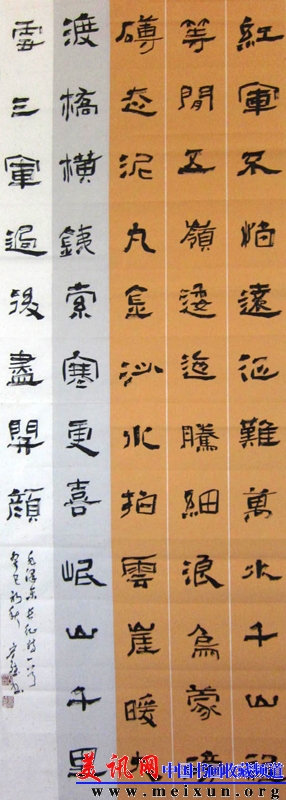 紅軍不怕遠征難萬水千山只
等閒五嶺逶迤騰細浪烏蒙磅
礴走泥丸金沙水拍雲崖暖大
渡橋橫銕索寒更喜岷山千里
雪三軍過後盡開顏
毛澤東長征詩一首
美讯网 中国书画收藏频道
www.meixun.org